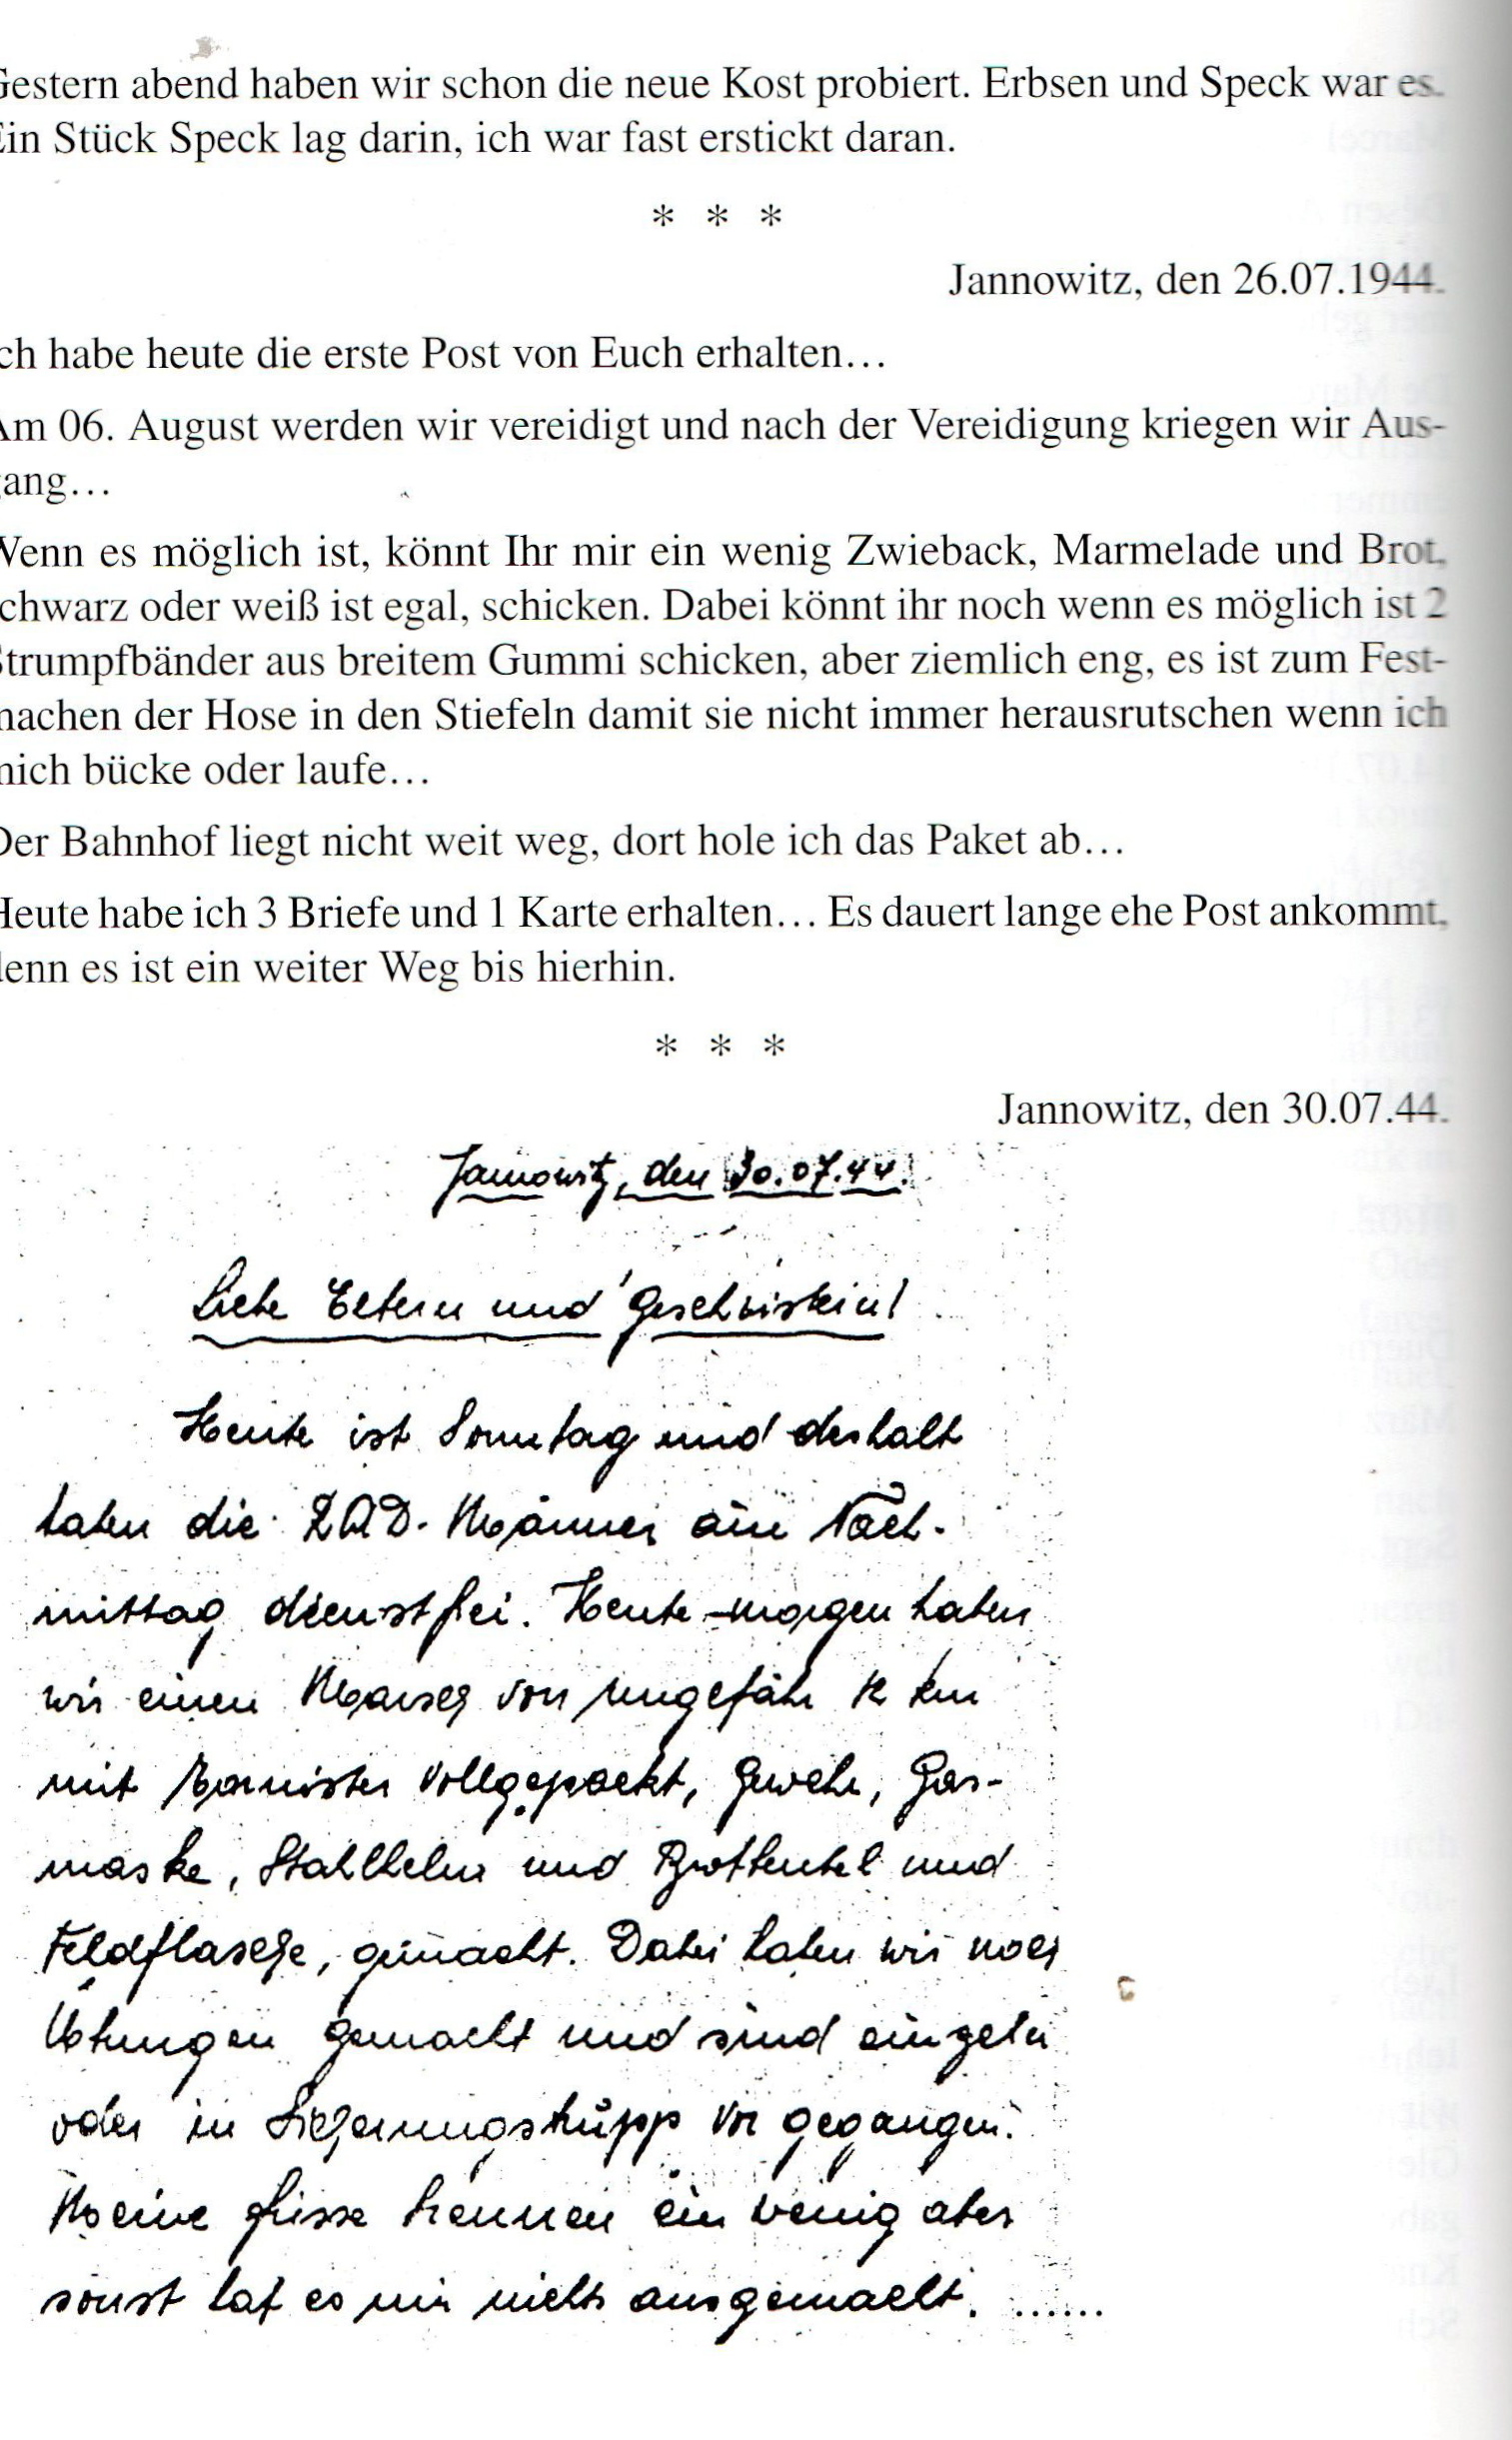 Gestern abend haben wir schon die neue Kost probiert. Erbsen und Speck war es.
Ein Stück Speck lag darin, ich war fast erstickt daran.
* * *
Jannowitz, den 26.07.1944.
ch habe heute die erste Post von Euch erhalten…
Am 06. August werden wir vereidigt und nach der Vereidigung kriegen wir Aus-
gang…
Wenn es möglich ist, könnt Ihr mir ein wenig Zwieback, Marmelade und Brot,
schwarz oder weiß ist egal, schicken. Dabei könnt ihr noch wenn es möglich ist 2
Strumpfbänder aus breitem Gummi schicken, aber ziemlich eng, es ist zum Fest-
machen der Hose in den Stiefeln damit sie nicht immer herausrutschen wenn ich
mich bücke oder laufe…
Der Bahnhof liegt nicht weit weg, dort hole ich das Paket ab…
Heute habe ich 3 Briefe und 1 Karte erhalten… Es dauert lange ehe Post ankommt,
denn es ist ein weiter Weg bis hierhin.
* * *
Jannowitz, den 30.07.44.
Jannowitz, den 30.07.44.
Liebe Eltern und Geschwister!
Heute ist Sonntag und deshalb
haben die RAD-Männer am Nach-
mittag dienstfrei. Heute morgen haben
wir einen Marsch von ungefähr 12 km
mit Tornister vollgepackt, Gewehr, Gas-
maske, Stahlhelm und Brotbeutel und
Feldflasche, gemacht. Dabei haben wir noch
Übungen gemacht und sind einzeln
oder in vor gegangen.
Meine Füsse brennen ein wenig aber
sonst hat es mir nichts ausgemacht. ......